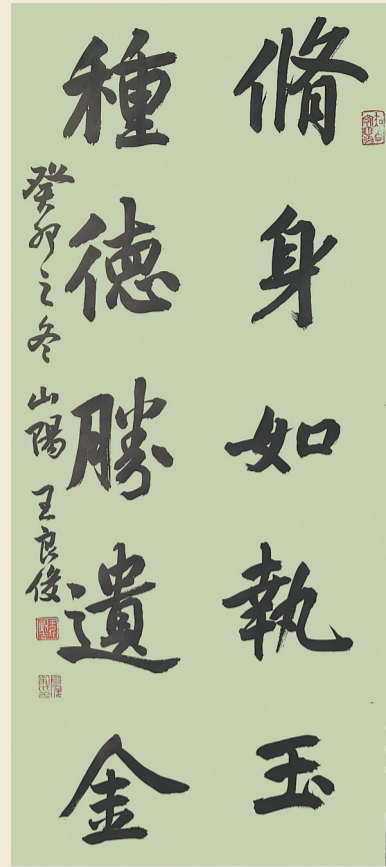 脩身如執玉
種德勝遺金
癸卯之冬 山陽 王良俊